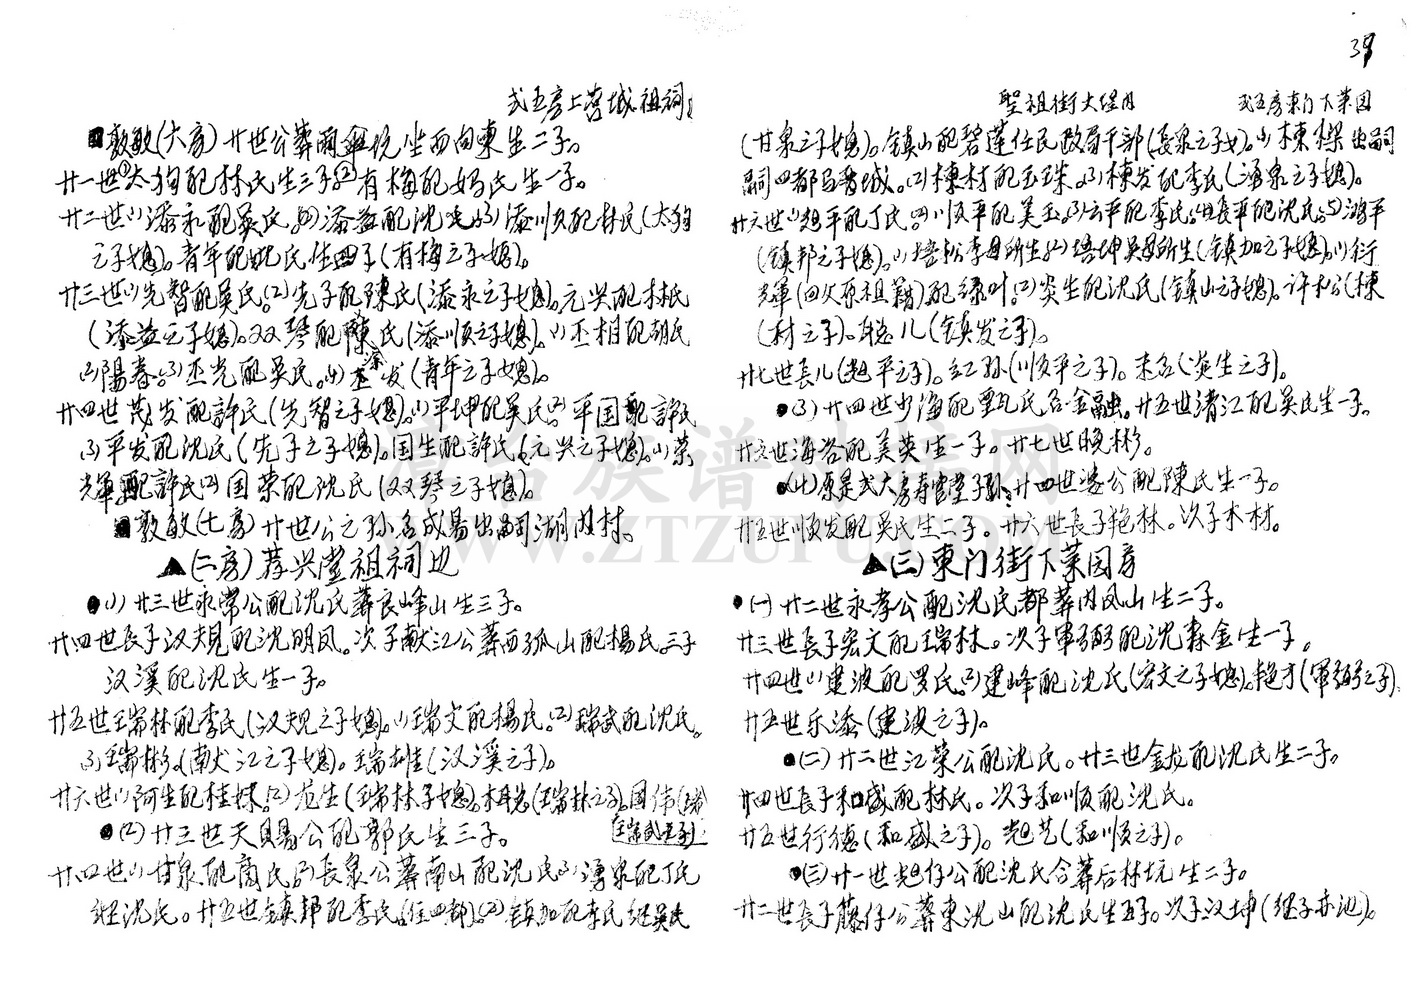 39
弍五房上营城祖祠
敦敏(六房)廿世公葬南伞坑坐西向東生二子。
廿一世①太狗配林氏生三子②有梅配妈氏生一子。
廿二世(1)添永配吴氏,(2)添益配沈氏(3)添順配林氏(太狗
之子媳)。青年配沈氏生四子(有梅之子媳)。
廿三世(1)先智配吴氏。(2)先子配陳氏(添永之子媳)。元兴配林氏
(添益之子媳)。双琴配陳氏(添順之子媳)。(1)丕相配胡氏
(2)陽春。(3)丕光配吴氏。(4)添发(青年之子媳)。
廿四世茂发配許氏(先智之子媳)。(1)平坤配吴氏(2)平国配許氏
(3)平发配沈氏(先子之子媳)。国生配許氏(元兴之子媳)。(1)荣
輝配許氏(2)国荣配沈氏(双琴之子媳)。
敦敏(七房)廿世公之孙名成易出嗣湖内村。
▲(二房)荐兴堂祖祠边
●(1)廿三世永常公配沈氏葬良峰山生三子。
廿四世長子汉規配沈明凤。次子献江公葬西孤山配楊氏。三子
汉溪配沈氏生一子。
廿五世瑞林配李氏(汉規之子媳)。(1)瑞文配楊氏。(2)瑞武配沈氏。
(3)瑞彬。(献江之子媳)。瑞雄(汉溪之子)。
廿六世(1)阿生配桂妹。(2)龙生(瑞林子媳)。(瑞林之子)。国伟(瑞
瑞武之子)
●(2)廿三世天賜公配郭氏生三子。
廿四世(1)甘泉配商氏(2)長泉公葬南山配沈氏(3)湧泉配丁氏
继沈氏。廿五世鎮邦配李氏(住四都)。(2)鎮加配李氏继吴氏
聖祖街大埕内 弍五房東门下菜园
(甘泉之子媳)。鎮山配碧蓮任民政局干部(長泉之子媳)。(1)棟樑出嗣
嗣四都马巷城。(2)棟材配玉珠。(3)棟发配李氏(湧泉之子媳)。
廿六世(1)想平配丁氏。(2)順平配美玉。(3)云平配李氏。(4)長平配沈氏。(5)鴻平
(鎮邦之子媳)。(1)培松李母所生(2)培坤吴母所生(鎮加之子媳)。(1)衍
輝(回父原祖籍)配绿叶。(2)炎生配沈氏(鎮山之子媳)。许松(棟
材之子)。聪儿(鎮发之子)。
廿七世長儿(想平之子)。红孙(順平之子)。未名(炎生之子)。
●(3)廿四世少海配甄氏名金融。廿五世清江配吴氏生一子。
廿六世海谷配美英生一子。廿七世晚彬。
●(4)原是弍大房寿官堂子孙:廿四世婆公配陳氏生一子。
廿五世順发配吴氏生二子。廿六世長子艳林。次子木材。
▲(三)東门街下菜园房
●(一)廿二世永孝公配沈氏都葬内凤山生二子。
廿三世長子宏文配瑞林。次子軍弼配沈森金生一子。
廿四世(1)建波配罗氏。(2)建峰配沈氏(宏文之子媳)。艳才(軍弼之子)
廿五世乐添(建波之子)。
●(二)廿二世江荣公配沈氏。廿三世金龙配沈氏生二子。
廿四世長子和盛配林氏。次子和順配沈氏。
廿五世行德(和盛之子)。旭艺(和順之子)。
●(三)廿一世旭仔公配沈氏合葬后林坑生二子。
廿二世長子藤仔公葬東沈山配沈氏生五子。次子汉坤(继子亦池)。